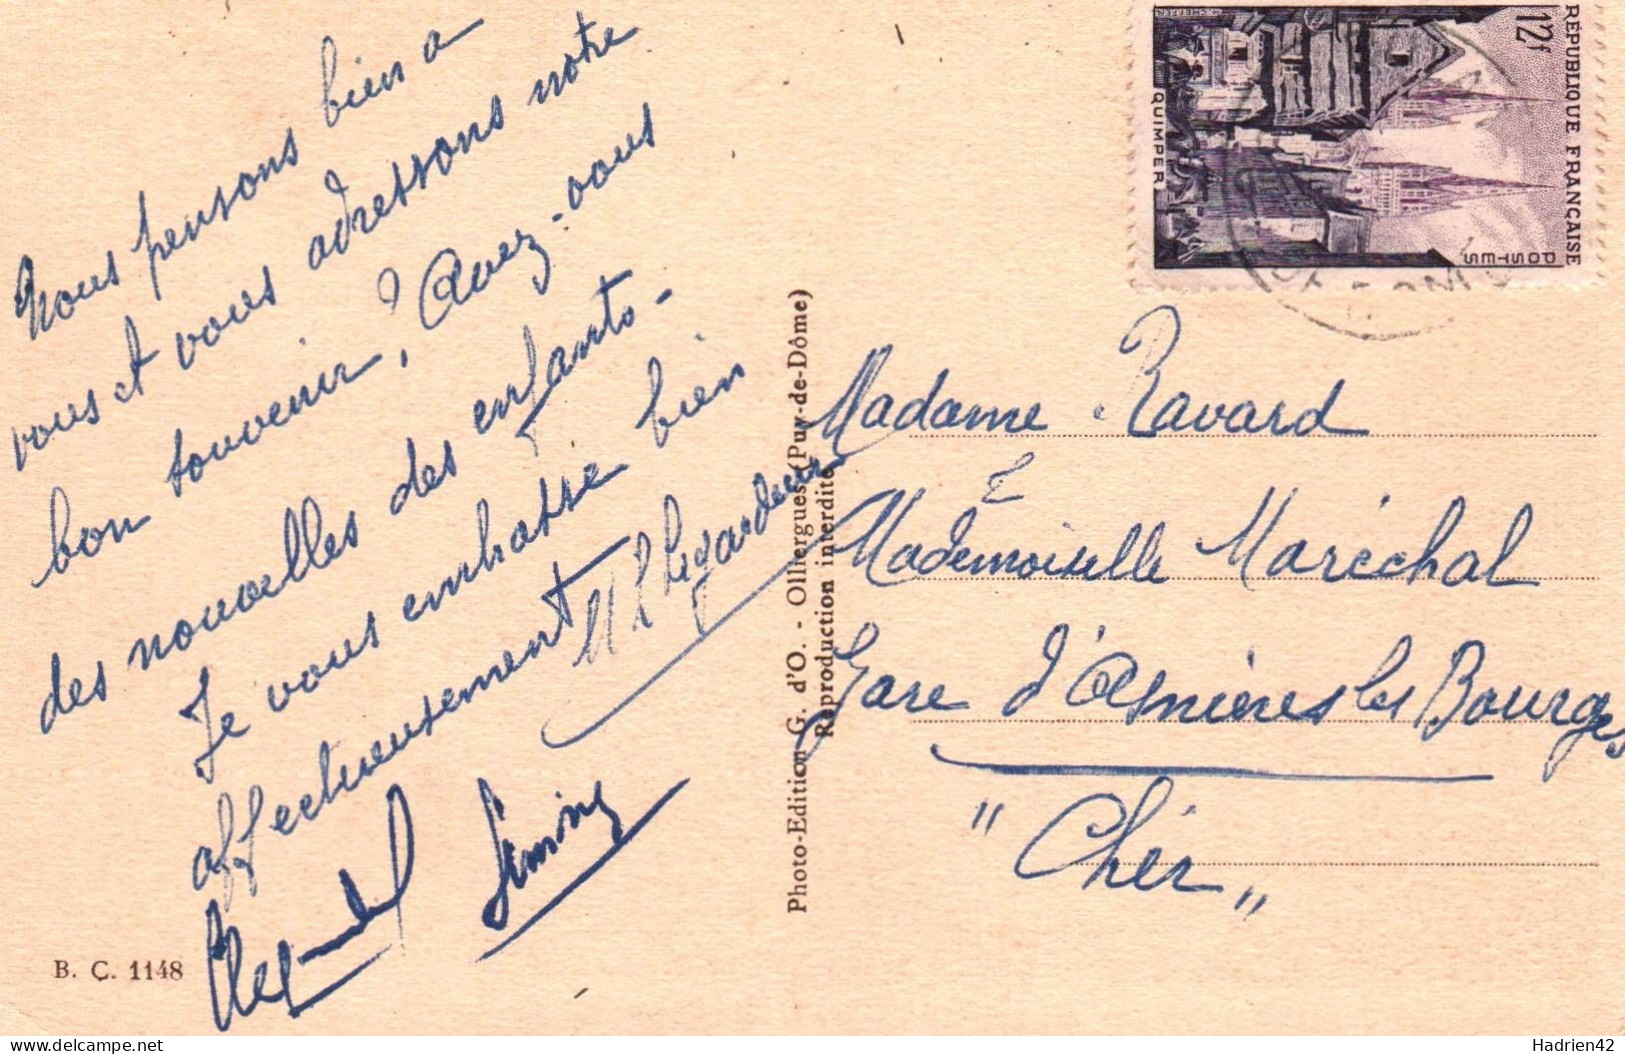 Nous pensons bien a
vous et vous adressons notre
bon souvenir, Avez-vous
des nouvelles des enfants -
Je vous embrasse bien
affectueusement
B. C. 1148
Photo-Edition G. d'O. - Olliergues (Puy-de-Dôme)
Reproduction interdite
RÉPUBLIQUE FRANÇAISE
12f
POSTES
QUIMPER
Madame Ravard
Mademoiselle Maréchal
Gare d'Asnières les Bourges
"Cher"
Hadrien42